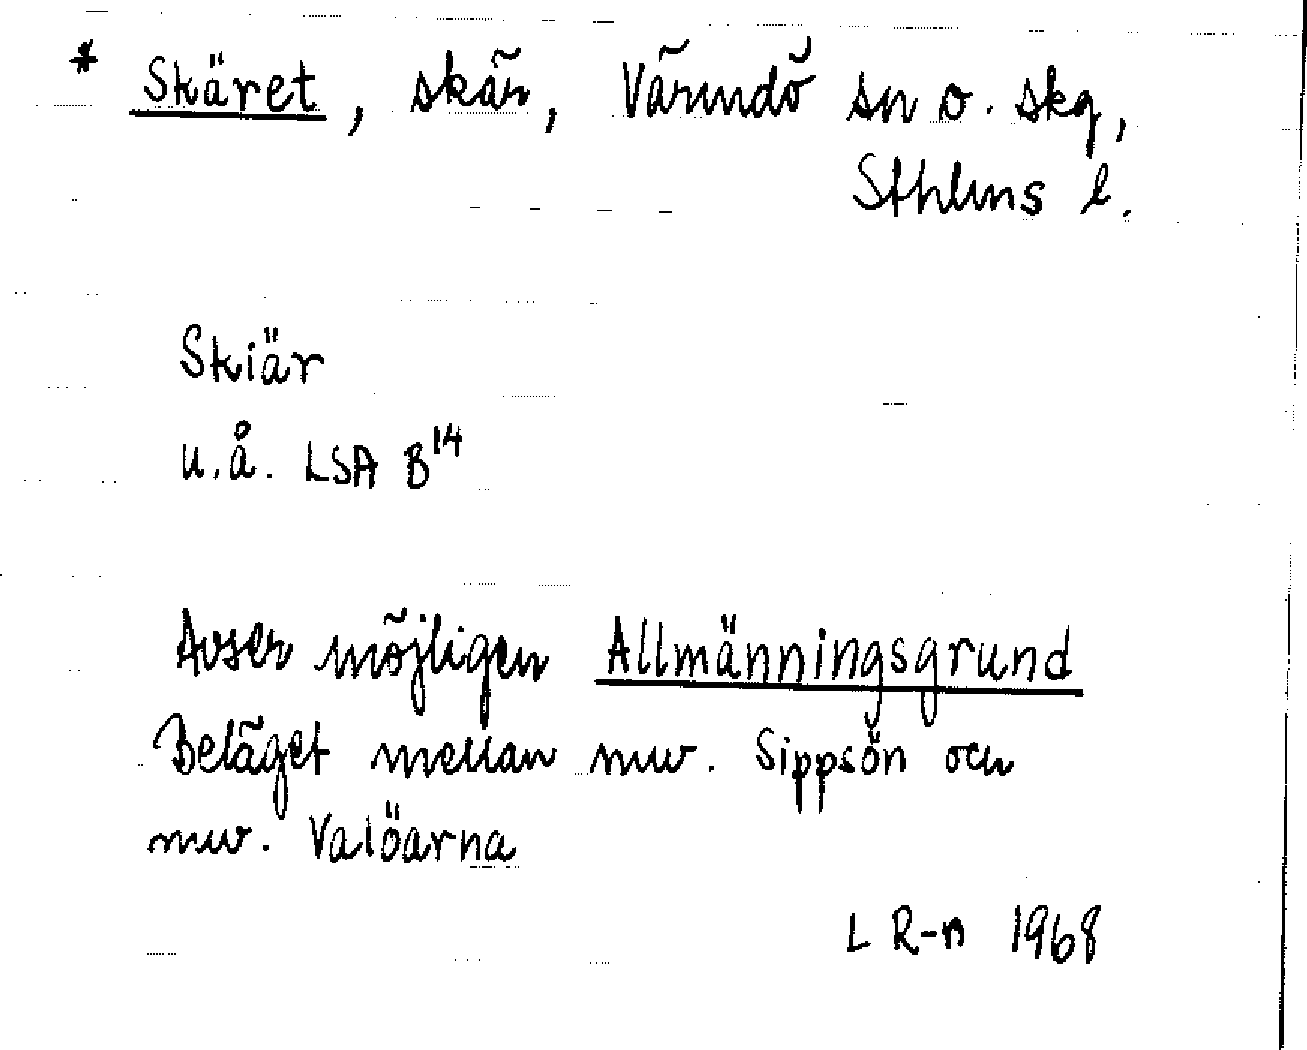 * Skäret, skär, Värmdö sn o. skg,
Sthlms l.
Skiär
u.å. LSA B¹⁴
Avser möjligen Allmänningsgrund
Beläget mellan nuv. Sippsön och
nuv. Valöarna
L R-n 1968